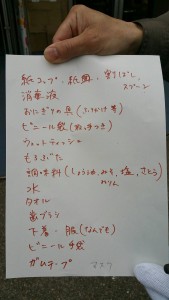 紙コップ、紙皿、割りばし、スプーン
消毒液
おにぎりの具(ふりかけ等)
ビニール袋(おにぎり)
ウェットティッシュ
もろぶた
調味料(しょうゆ、みそ、塩、さとう
みりん
水
タオル
歯ブラシ
下着・服(なんでも)
ビニール手袋
ガムテープ
マスク